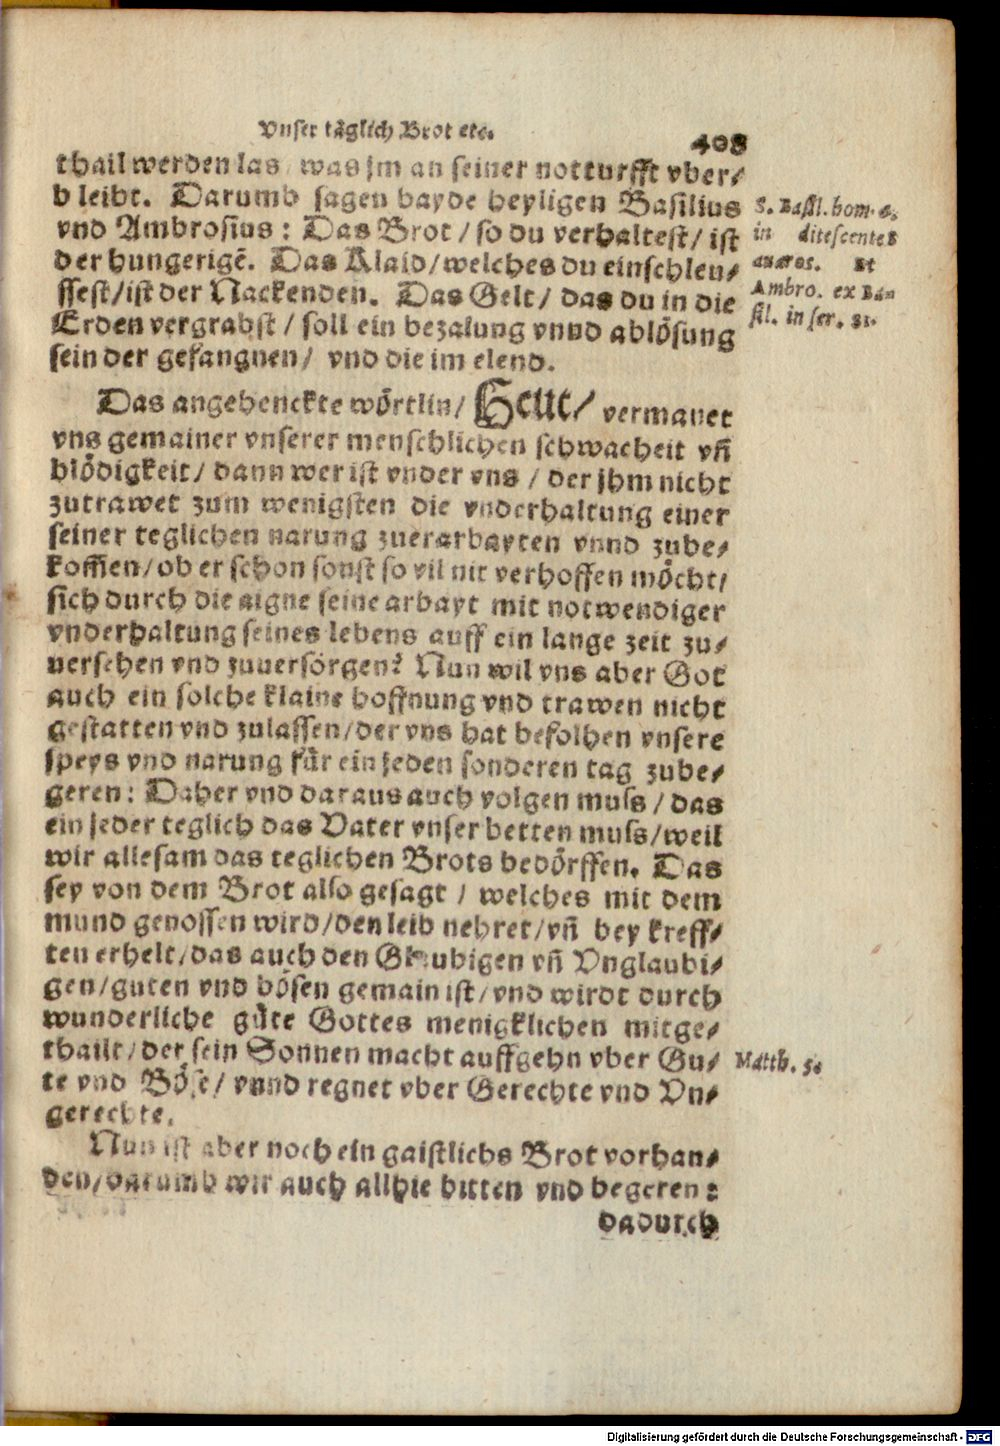 Vnser täglich Brot etc.
408
thail werden las / was jm an seiner notturfft vber⸗
bleibt. Darumb sagen bayde heyligen Basilius
vnd Ambrosius: Das Brot / so du verhaltest / ist
der hungerigē. Das Klaid / welches du einschleu⸗
ssest / ist der Nackenden. Das Gelt / das du in die
Erden vergrabst / soll ein bezalung vnnd ablösung
sein der gefangnen / vnd die im elend.
S. Basil. hom. 6.
in ditescentes
auaros. et
Ambro. ex Ba⸗
sil. in ser. 81.
Das angehenckte wörtlin / Heut / vermanet
vns gemainer vnserer menschlichen schwacheit vñ
blödigkeit / dann wer ist vnder vns / der jhm nicht
zutrawet zum wenigsten die vnderhaltung einer
seiner teglichen narung zuerarbayten vnnd zube⸗
kom̃en / ob er schon sonst so vil nit verhoffen möcht /
sich durch die aigne seine arbayt mit notwendiger
vnderhaltung seines lebens auff ein lange zeit zu⸗
uersehen vnd zuuersorgen? Nun wil vns aber Got
auch ein solche klaine hoffnung vnd trawen nicht
gestatten vnd zulassen / der vns hat befolhen vnsere
speys vnd narung für ein jeden sonderen tag zube⸗
geren: Daher vnd daraus auch volgen muss / das
ein jeder teglich das Vater vnser betten muss / weil
wir allesam das teglichen Brots bedörffen. Das
sey von dem Brot also gesagt / welches mit dem
mund genossen wird / den leib nehret / vñ bey kreff⸗
ten erhelt / das auch den Glaubigen vñ Vnglaubi⸗
gen / guten vnd bösen gemain ist / vnd wirdt durch
wunderliche güte Gottes menigklichen mitge⸗
thailt / der sein Sonnen macht auffgehn vber Gu⸗
te vnd Böse / vnnd regnet vber Gerechte vnd Vn⸗
gerechte.
Matth. 5.
Nun ist aber noch ein gaistlichs Brot vorhan⸗
den / darumb wir auch allhie bitten vnd begeren:
dadurch
Digitalisierung gefördert durch die Deutsche Forschungsgemeinschaft - DFG